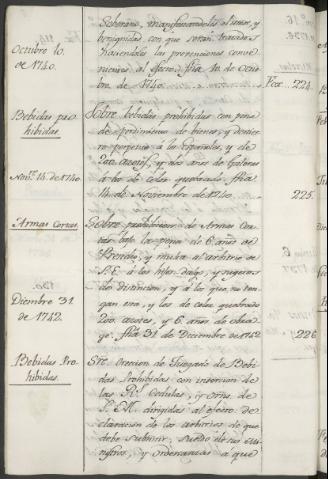 Soberano, manifestandoles el amor, y
benignidad con que serán tratados
haciendoles las prevenciones conve-
nientes al efecto: fha 10 de Octu-
bre de 1740. Fox. 224.
Octubre 10.
de 1740.
Bebidas pro-
hibidas.
Sobre bebidas prohibidas con pena
de perdimiento de bienes, y destier-
ro perpetuo à los Españoles, y de
200. azotes, y dos años de Galeras
à los de color quebrado. fha
14 de Noviembre de 1740. 225.
Novre. 14. de 1740.
Armas Cortas.
Sobre prohibicion de Armas Cor-
tas bajo la pena de 6. años de
Presidio, y multa al arbitrio de
S.E. à los hijos dalgo, y sugetos
de distincion, y à los que no ten-
gan uno, y los de color quebrado
200. azotes, y 6. años de
fha 31 de Diciembre de 1742. 226
Diciembre 31.
de 1742.
Bebidas Pro-
hibidas.
Sre. Ereccion de Juzgado de Bebi-
das Prohibidas con insercion de
las Rs. Cedulas, y Orns. de
S. M. dirigidas al efecto de
claracion de los arbitrios de que
debe subsistir, sueldo de sus Mi-
nistros, y ordenanzas à que